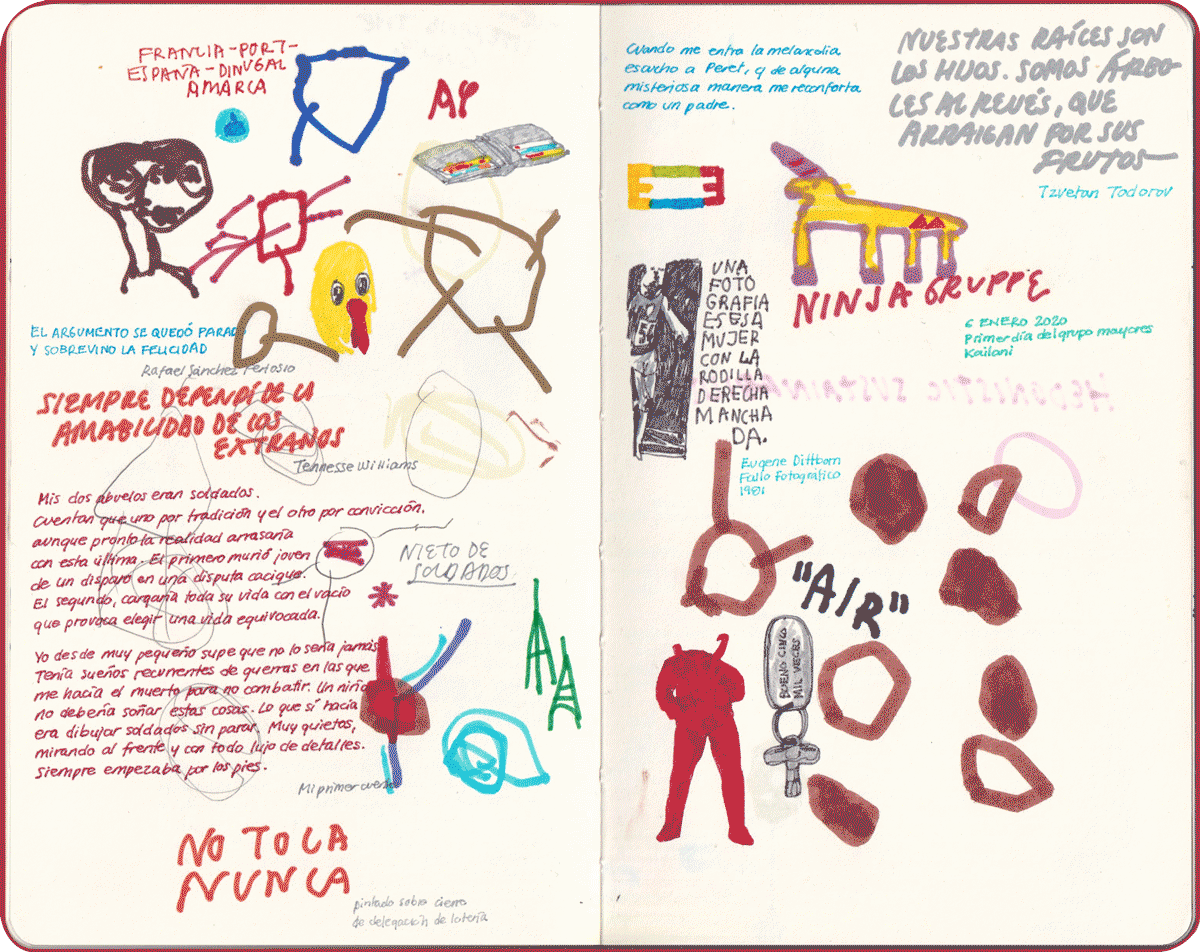 FRANCIA-PORT-
ESPAÑA-DINUGAL
AMARCA
AY
EL ARGUMENTO SE QUEDÓ PARADO
Y SOBREVINO LA FELICIDAD
Rafael Sánchez Ferlosio
SIEMPRE DEPENDÍ DE LA
AMABILIDAD DE LOS
EXTRAÑOS
Tennesse Williams
Mis dos abuelos eran soldados.
Cuentan que uno por tradición y el otro por convicción,
aunque pronto la realidad arrasaría
con esta última. El primero murió joven
de un disparo en una disputa cacique.
El segundo, cargaría toda su vida con el vacío
que provoca elegir una vida equivocada.
NIETO DE
SOLDADOS.
Yo desde muy pequeño supe que no lo sería jamás.
Tenía sueños recurrentes de guerras en las que
me hacía el muerto para no combatir. Un niño
no debería soñar estas cosas. Lo que sí hacía
era dibujar soldados sin parar. Muy quietos,
mirando al frente y con todo lujo de detalles.
Siempre empezaba por los pies.
Mi primer
NO TOCA
NUNCA
pintado sobre cierre
de delegación de lotería
Cuando me entra la melancolia
escucho a Peret, y de alguna
misteriosa manera me reconforta
como un padre.
NUESTRAS RAÍCES SON
LOS HIJOS. SOMOS ÁRBO-
LES AL REVÉS, QUE
ARRAIGAN POR SUS
FRUTOS
Tzvetan Todorov
NINJA GRUPPE
6 ENERO 2020
Primer día del grupo mayores
Kailani
UNA
FOTO
GRAFIA
ES ESA
MUJER
CON LA
RODILLA
DERECHA
MANCHA
DA.
Eugene Dittborn
Fallo Fotográfico
1981
HEDONISTIC SUSTAINA
"AIR"
BUENO CING
MIL VECES